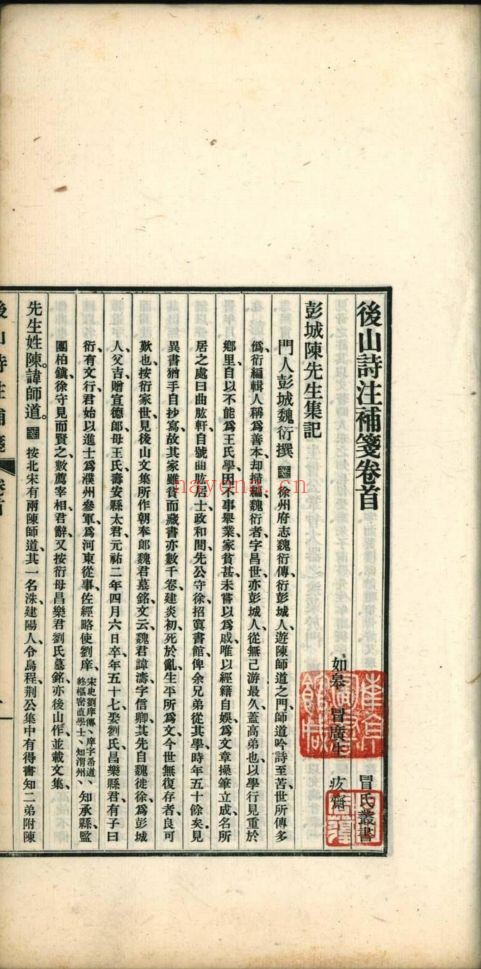 後山詩注補箋卷首
如皋 冒廣生 疚齋 冒氏叢書
彭城陳先生集記
門人彭城魏衍撰 箋 徐州府志魏衍傳衍彭城人遊陳師道之門師道吟詩至苦世所傳多
僞衍編輯人稱爲善本却掃編魏衍者字昌世亦彭城人從無己游最久蓋高弟也以學行見重於
鄉里自以不能爲王氏學因不事舉業家貧甚未嘗以爲戚唯以經籍自娛爲文章操筆立成名所
居之處曰曲肱軒自號曲肱居士政和間先公守徐招寘書館俾余兄弟從其學時年五十餘矣見
異書猶手自抄寫故其家雖貧而藏書亦數千卷建炎初死於亂生平所爲文今世無復存者良可
歎也按衍家世見後山文集所作朝奉郎魏君墓銘文云魏君諱濤字信卿其先自魏徙徐爲彭城
人父吉贈宣德郎母王氏壽安縣太君元祐二年四月六日卒年五十七娶劉氏昌樂縣君有子曰
衍有文行君始以進士爲濮州參軍爲河東從事佐經略使劉庠 宋史劉庠傳、庠字希道、
終樞密直學士、知渭州、 知承縣監
團柏鎮徐守見而賢之數薦宰相君辭又按衍母昌樂君劉氏墓銘亦後山作並載文集
先生姓陳。諱師道。 箋 按北宋有兩陳師道其一名洙建陽人令烏程荆公集中有得書知二弟附陳
後山詩注補箋 卷首
haveng.cn